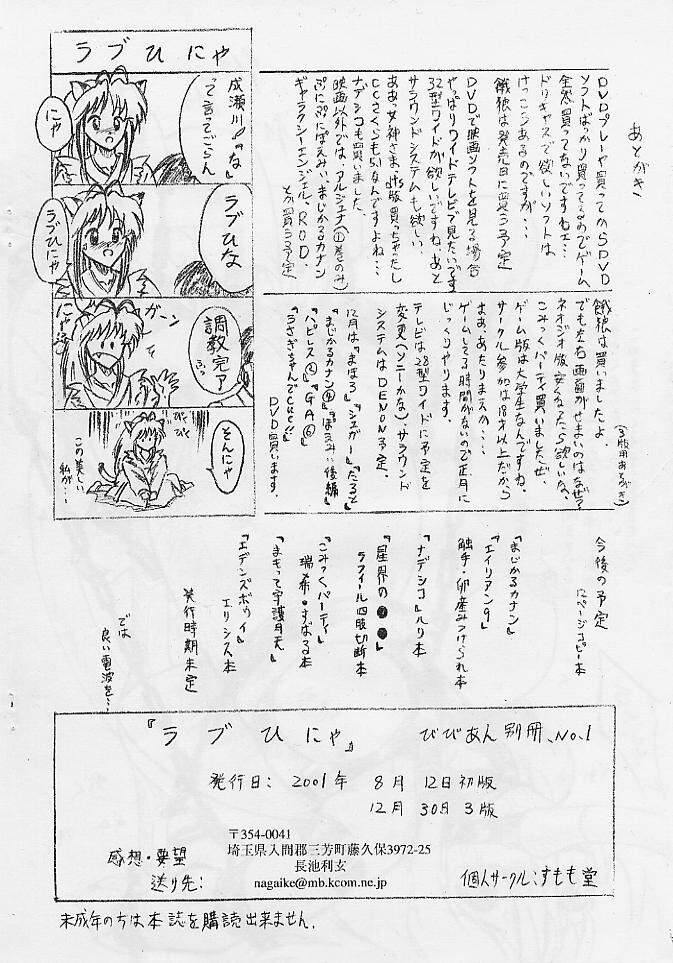 ラブひにゃ
成瀬川♪「な」
って言ってごらん
にゃ
ラブひな
ラブひにゃ
調教完了
ふっ
ガーン
にゃ
そんにゃ
びく
びく
この美しい
私が…
あとがき
DVDプレーヤ買ってからSDVD
ソフトばっかり買ってるのでゲーム
全然買ってないですねェ…
ドリキャスで欲しいソフトは
けっこうあるのですが…
餓狼は発売日に買う予定
DVDで映画ソフトを見る場合
やっぱりワイドテレビで見たいです
32型ワイドが欲しいですね。あと
サラウンドシステムも欲しい。
ああっ女神さまdts版買っちゃったし
CCさくらも5.1なんですよね…
ナデシコも買いました。
映画以外では、アルジェナ(①巻のみ)
ぷにぷにぽえみぃ、まじかるカナン
ギャラクシーエンジェル、ROD、
とか買う予定
(3版用あとがき)
餓狼は買いましたよ。
でも左右画面がせまいのはなぜ?
ネオジオ版安くなったら欲しいな。
こみっくパーティ買いましたぜ。
ゲーム版は大学生なんですね。
サークル参加は18才以上だから
まあ、あたりまえか…
ゲームしてる時間がないので正月に
じっくりやります。
テレビは28型ワイドに予定を
変更(ソニーかな)、サラウンド
システムはDENON予定。
12月は『まほろ』『シュガー』『だぁ』
『まじかるカナン④』『ぽえみぃ後編』
『ハピレス②』『GA⑥』
『うさぎちゃんでCue!!』
DVD買います。
今後の予定
12ページコピー本
『まじかるカナン』
『エイリアン9』
触手・卵産みつけられ本
『ナデシコ』ルリ本
『星界の●●』
ラフィール四股切断本
『こみっくパーティ』
瑞希・すばる本
『まもって守護月天』
『エデンズボゥイ』
エリシス本
発行時期未定
では
良い電波を…
『ラブひにゃ』 びびあん別冊、No.1
発行日: 2001年 8月 12日初版
12月 30日 3版
〒354-0041
埼玉県入間郡三芳町藤久保3972-25
長池利玄
nagaike@mb.kcom.ne.jp
感想・要望
送り先:
個人サークル:すもも堂
未成年の方は本誌を購読出来ません.